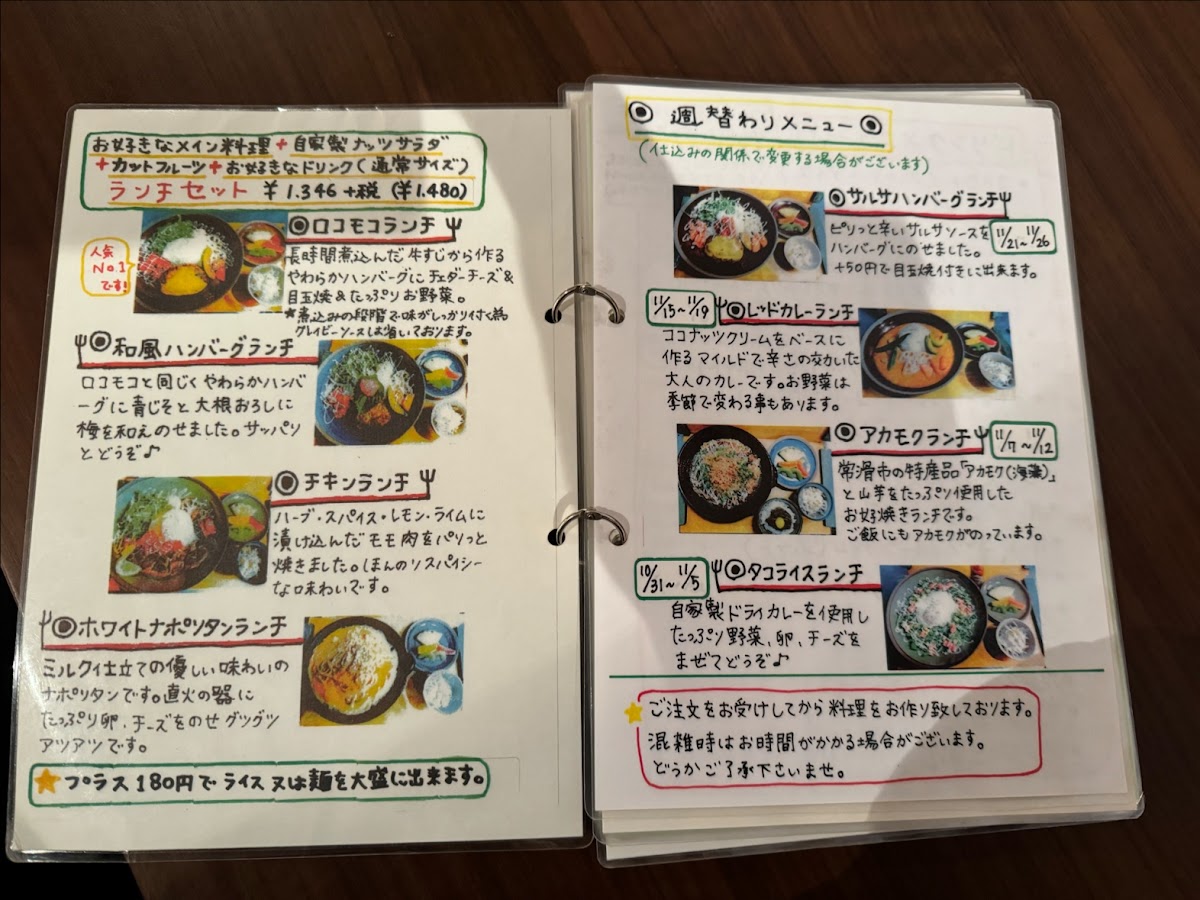 お好きなメイン料理+自家製ナッツサラダ
+カットフルーツ+お好きなドリンク(通常サイズ)
ランチセット ¥1.346+税 (¥1.480)
人気
No.1
です!
◎ロコモコランチ
長時間煮込んだ牛すじから作る
やわらかハンバーグにチェダーチーズ&
目玉焼&たっぷりお野菜。
★煮込みの段階で味がしっかり付く為
グレイビーソースは省いております。
◎和風ハンバーグランチ
ロコモコと同じくやわらかハンバ
ーグに青じそと大根おろしに
梅を和えのせました。サッパリ
とどうぞ♪
◎チキンランチ
ハーブ・スパイス・レモン・ライムに
漬け込んだモモ肉をパリっと
焼きました。ほんのりスパイシー
な味わいです。
◎ホワイトナポリタンランチ
ミルクィ仕立ての優しい味わいの
ナポリタンです。直火の器に
たっぷり卵、チーズをのせグツグツ
アツアツです。
★プラス180円でライス又は麺を大盛に出来ます。
◎週替わりメニュー◎
(仕込みの関係で変更する場合がございます)
◎サルサハンバーグランチ
11/21~11/26
ピリっと辛いサルサソースを
ハンバーグにのせました。
+50円で目玉焼付きに出来ます。
11/15~11/19
◎レッドカレーランチ
ココナッツクリームをベースに
作るマイルドで辛さの効いた
大人のカレーです。お野菜は
季節で変わる事もあります。
◎アカモクランチ
11/7~11/12
常滑市の特産品「アカモク(海藻)」
と山芋をたっぷり使用した
お好焼きランチです。
ご飯にもアカモクがのっています。
10/31~11/5
◎タコライスランチ
自家製ドライカレーを使用し
たっぷり野菜、卵、チーズを
まぜてどうぞ♪
★ご注文をお受けしてから料理をお作り致しております。
混雑時はお時間がかかる場合がございます。
どうかご了承下さいませ。